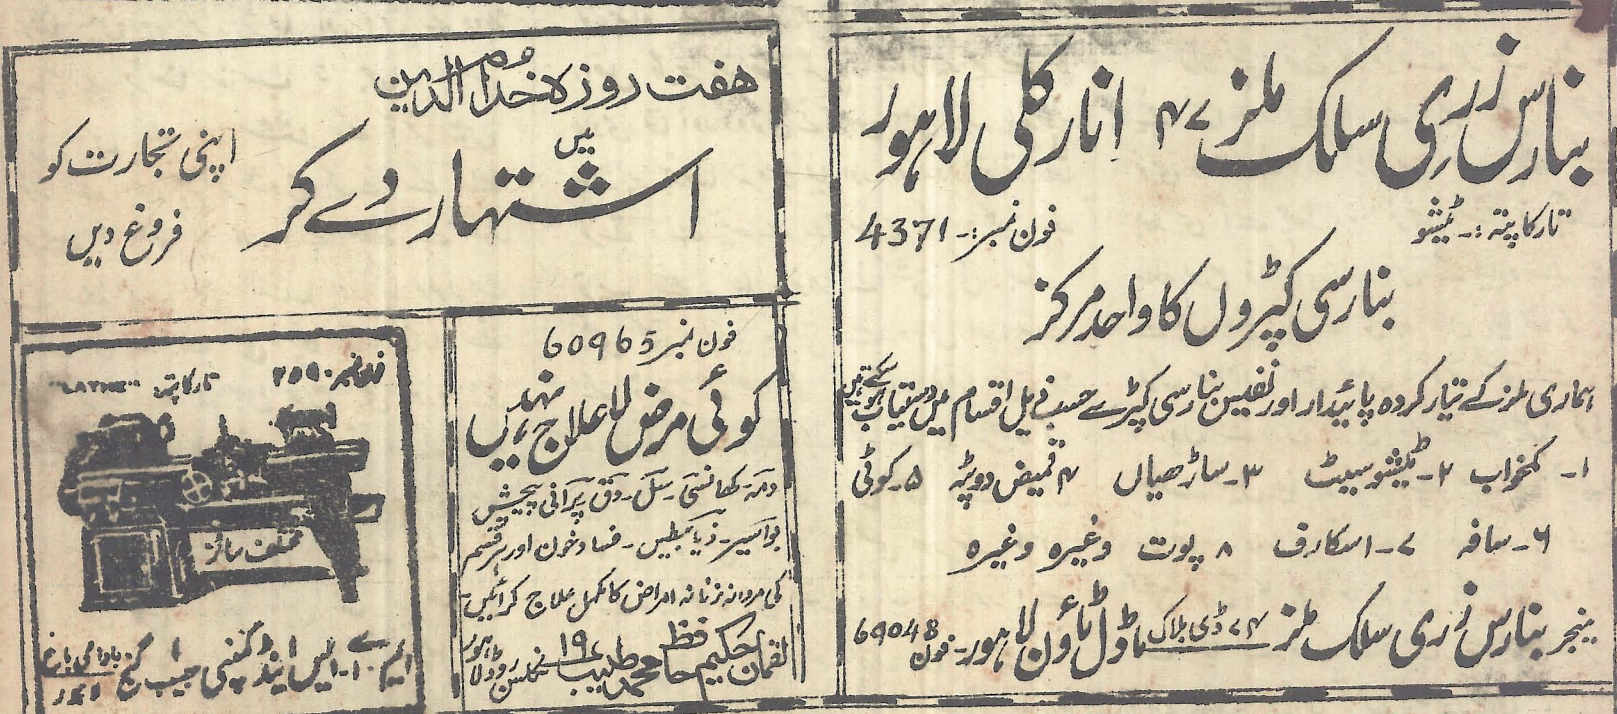 بنارس زری سلک ملز ۴۷ انار کلی لاہور
تار کا پتہ :۔ ٹیشو فون نمبر :۔ 4371
بنارسی کپڑوں کا واحد مرکز
ہماری ملز کے تیار کردہ پائیدار اور نفیس بنارسی کپڑے حسب ذیل اقسام میں دستیاب ہو سکتے ہیں
۱۔ کمخواب ۲۔ ٹیشو سیٹ ۳۔ ساڑھیاں ۴ قمیض دوپٹہ ۵۔ کوٹی
۶۔ صافہ ۷۔ اسکارف ۸ پوت وغیرہ وغیرہ
مینجر بنارس زری سلک ملز ۷۴ ڈی بلاک ماڈل ٹاؤن لاہور۔ فون 69048
ہفت روزہ خدام الدین
میں
اشتہار دے کر
اپنی تجارت کو
فروغ دیں
فون نمبر 60965
کوئی مرض لا علاج نہیں
دمہ۔ کھانسی۔ سل۔ دق پرانی پیچش
بواسیر۔ ذیابیطیس۔ فساد خون اور ہر قسم
کی مردانہ زنانہ امراض کا مکمل علاج کرائیں۔
لقمان حکیم حافظ محمد طیب ۱۹ نکلسن روڈ لاہور
فون نمبر ۲۵۹۰ تار کا پتہ "LATHE"
مختلف سائز
ایم۔ اے۔ ایس اینڈ کمپنی حبیب گنج بادامی باغ لاہور